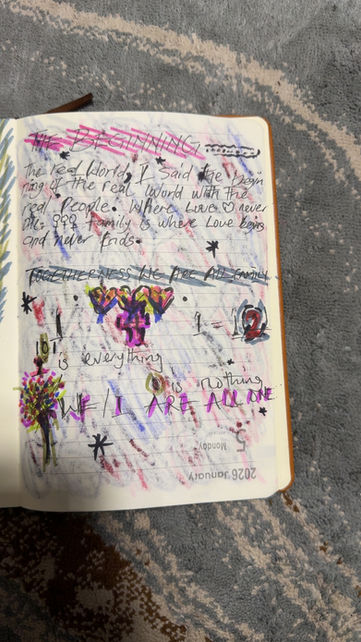 THE BEGINNING
The real World, I Said the begin
ning of the real World with the
real People. Where Love ♡ never
. Family is where Love begins
and never Ends.
TOGETHERNESS WE ARE ALL FAMILY
1
1 = 
2
101
is everything
0 is nothing
WE/I ARE ALL ONE
5
Monday
2026 January